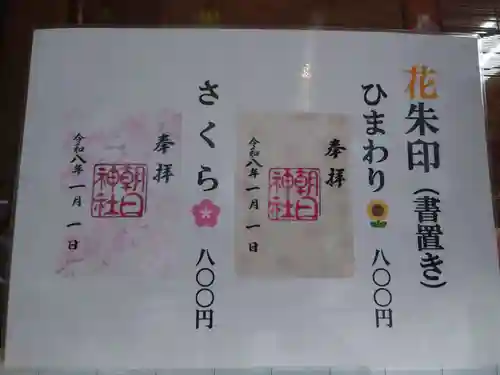 花朱印（書置き）
ひまわり🌻 八〇〇円
奉拝
朝日神社
令和八年 一月 一日
さくら🌸 八〇〇円
奉拝
朝日神社
令和八年 一月 一日